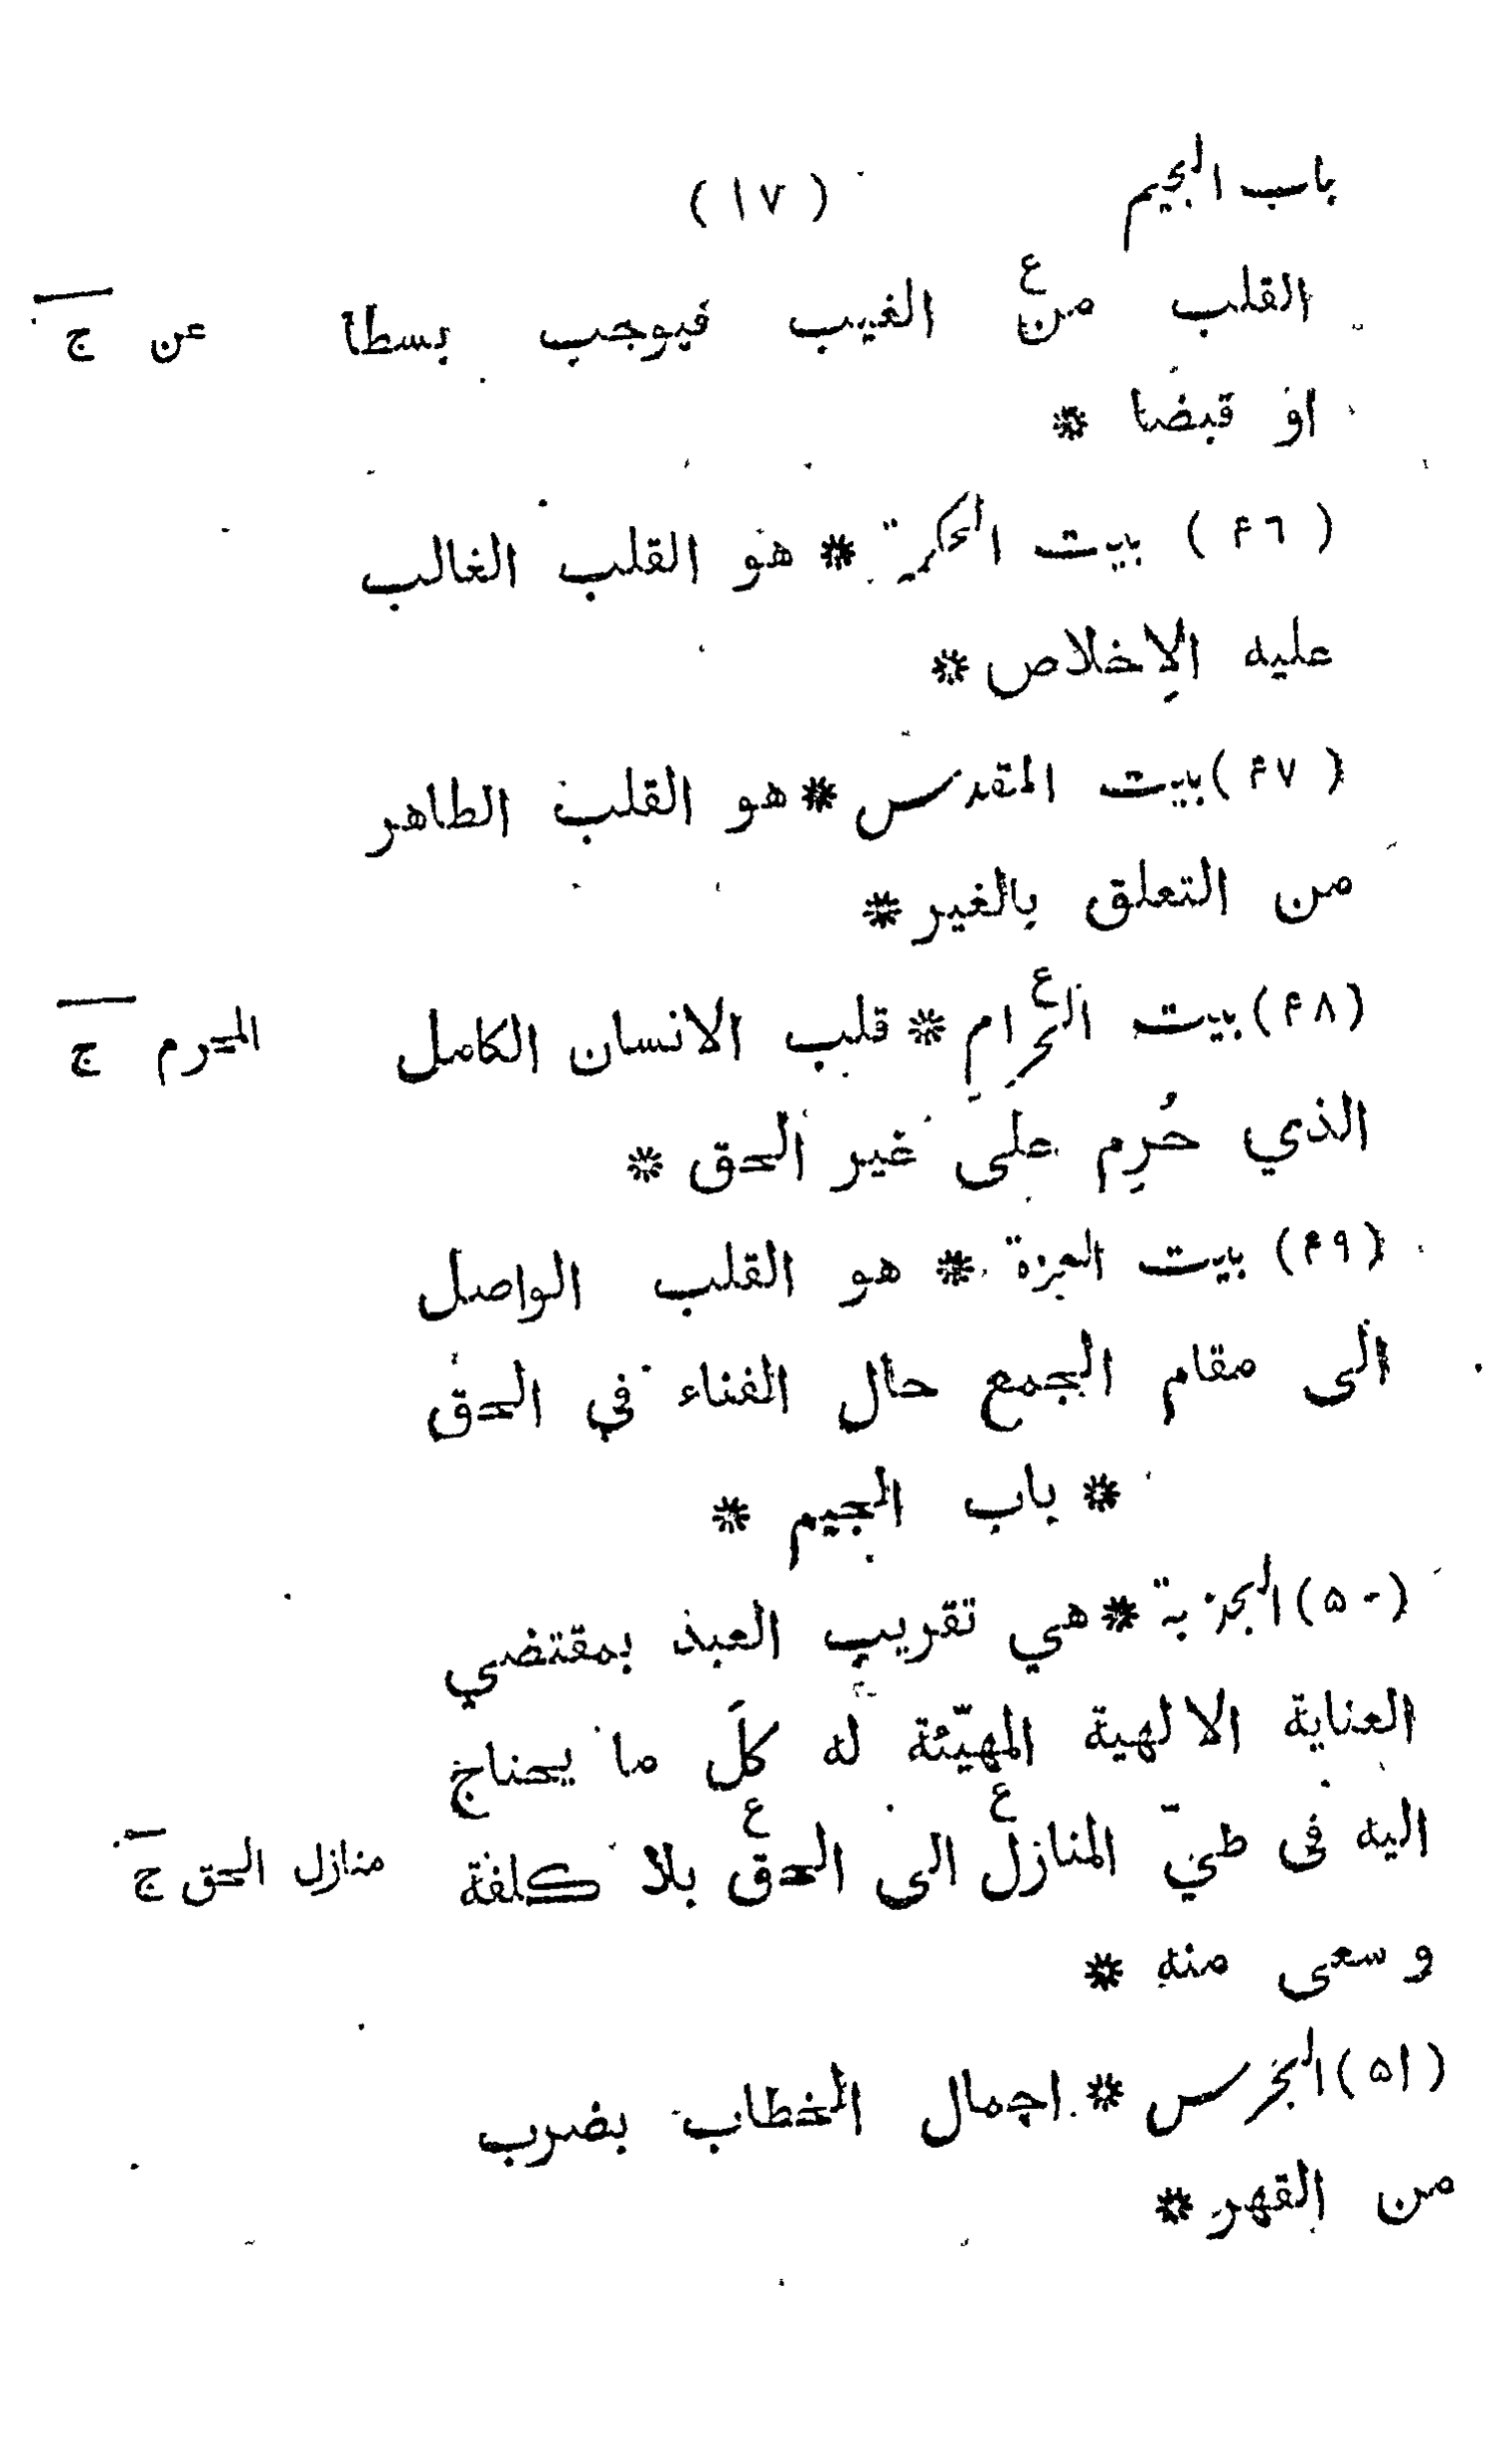 باب الجيم (١٧)
القلب من ع الغيب فيوجب بسطا عن ج
او قبضا *
(۴٦) بيت الحكمة * هو القلب الغالب
عليه الإخلاص *
(۴٧) بيت المقدس * هو القلب الطاهر
من التعلق بالغير *
(۴٨) بيت الحرام ع * قلب الانسان الكامل المحرم ج
الذي حُرِم على غير الحق *
(۴٩) بيت العزة * هو القلب الواصل
الى مقام الجمع حال الفناء في الحق
* باب الجيم *
(۵٠) الجذبة * هي تقريب العبد بمقتضي
العناية الالهية المهيّئة له كلَ ما يحتاج
اليه فى طيّ المنازل ع الى الحق ع بلا كلفة منازل الحق ج
و سعى منه *
(۵١) الجرس * اجمال الخطاب بضرب
من القهر *